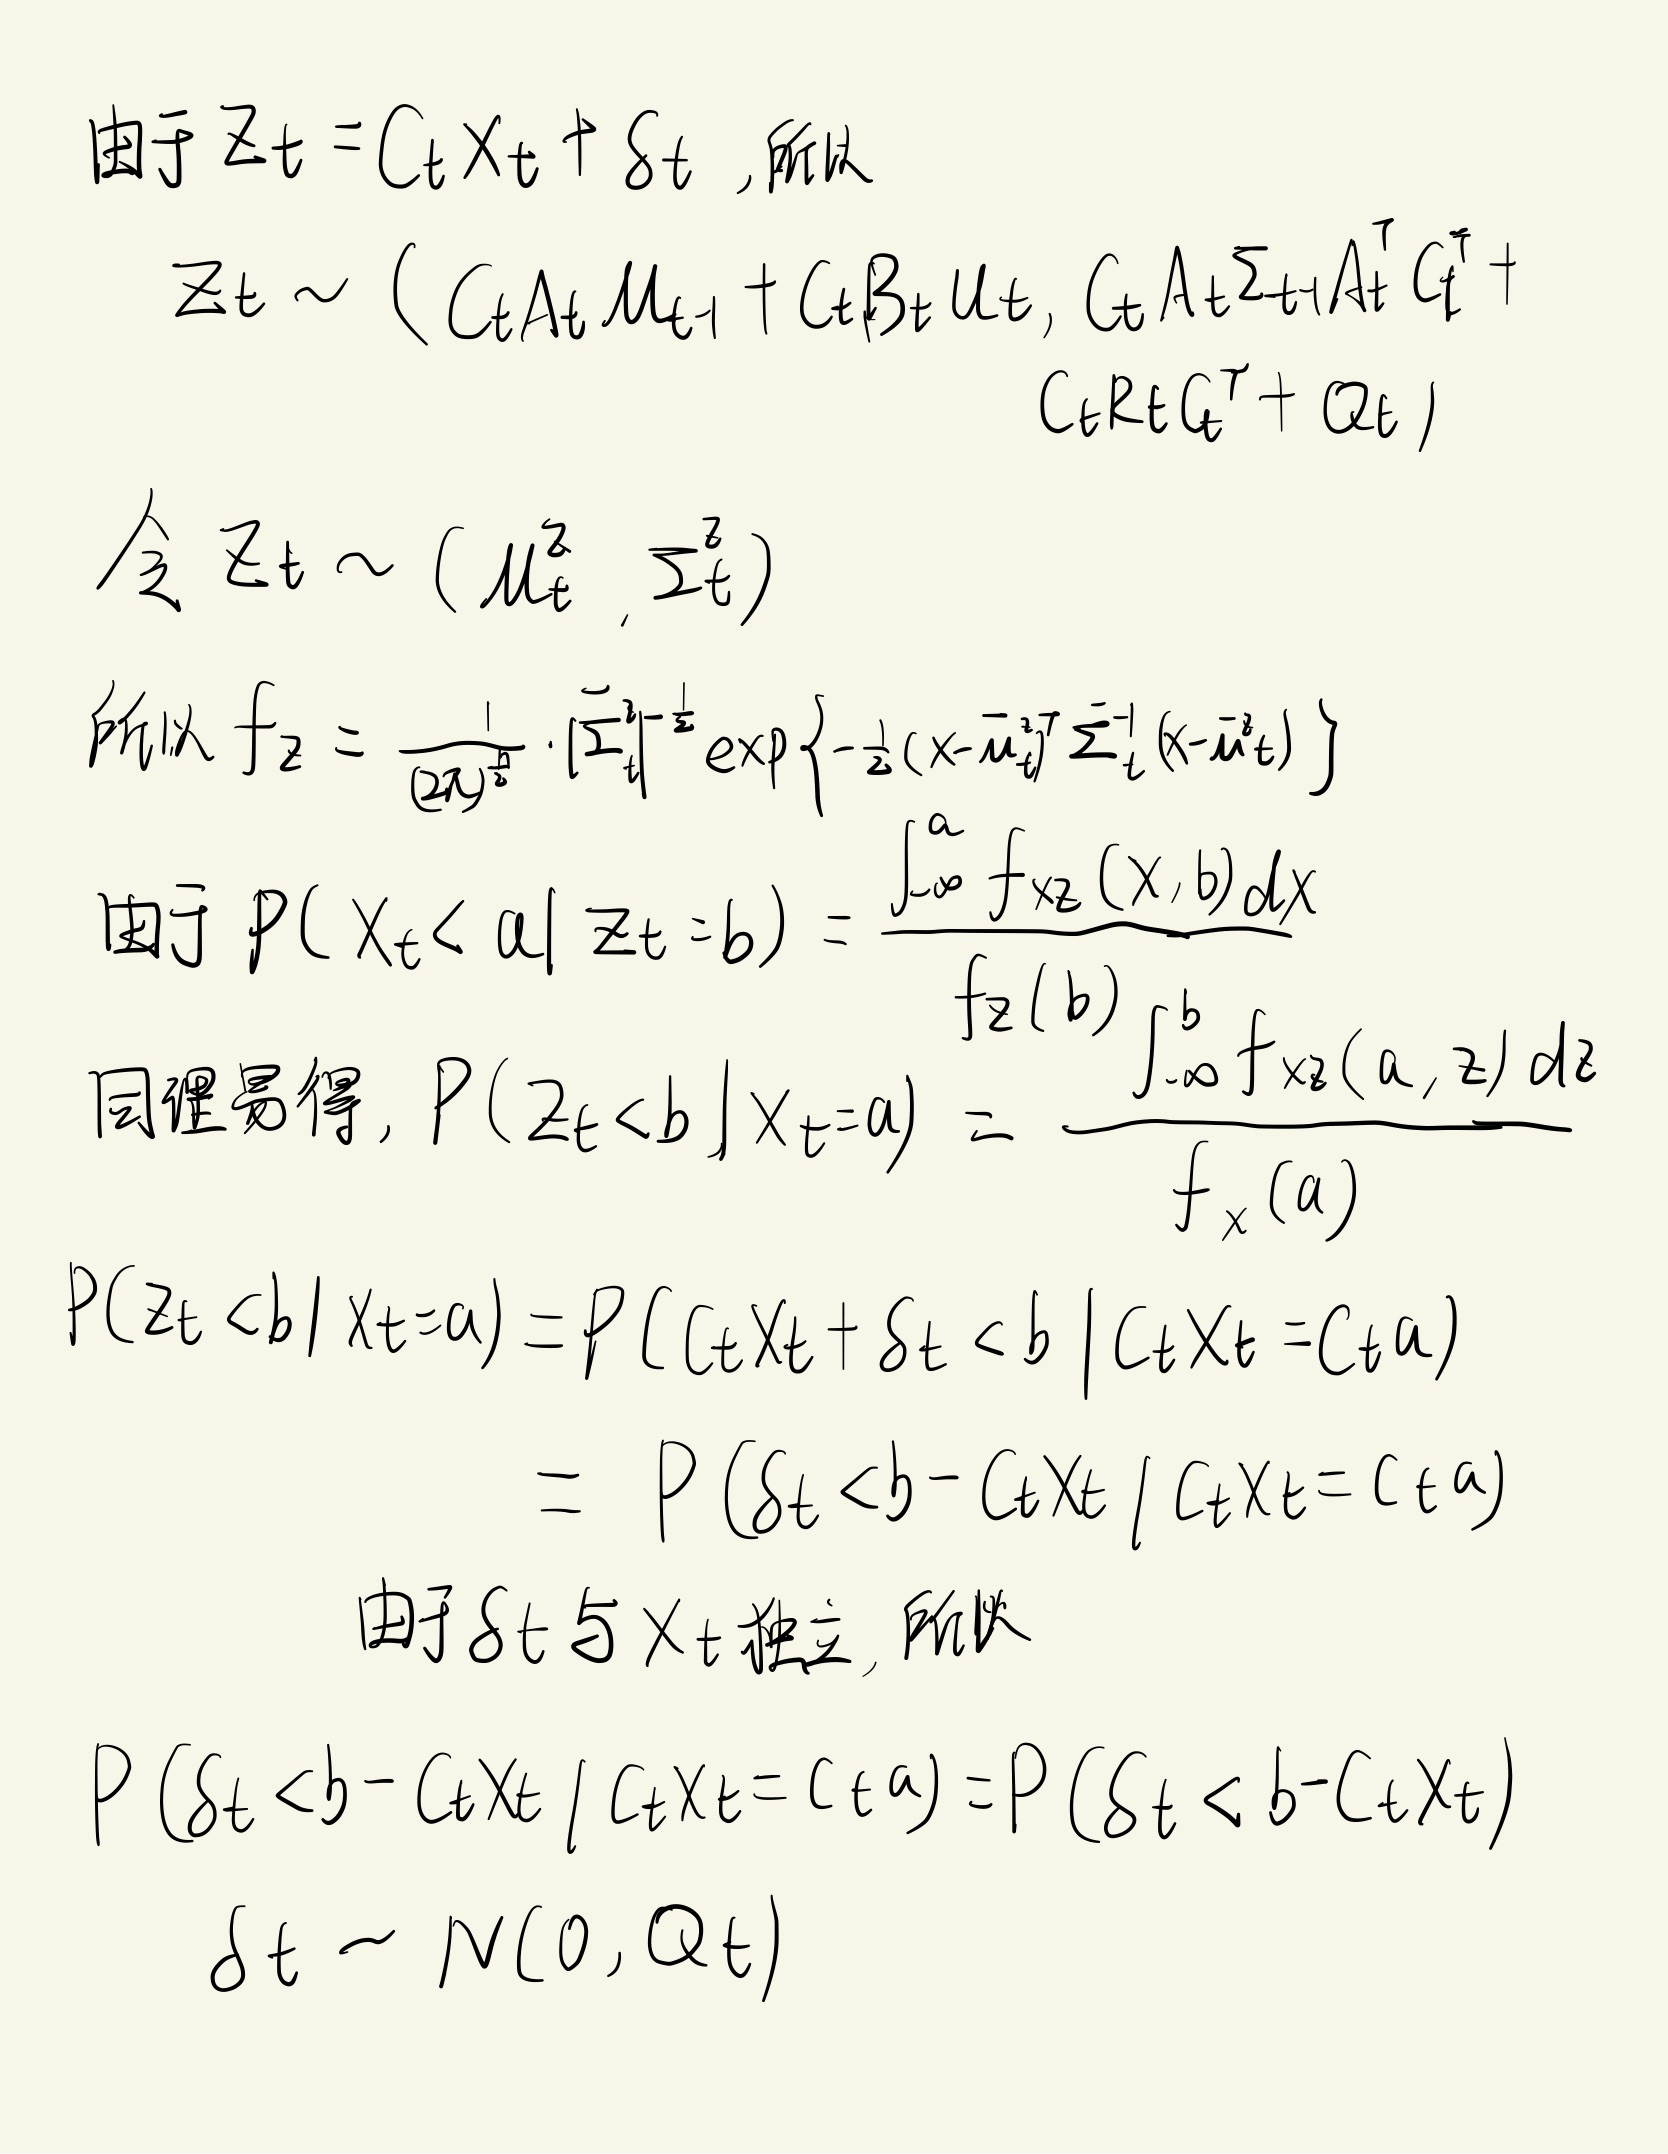 由于 Zt = Ct Xt + δt , 所以
Zt ~ ( Ct At μt-1 + Ct Bt ut, Ct At Σt-1 At^T Ct^T +
Ct Rt Ct^T + Qt )
令 Zt ~ ( μt^z , Σt^z )
所以 fz = 1/(2π)^(n/2) · |Σ̄t^z|^(-1/2) exp{ -1/2 (x - μ̄t^z)^T Σ̄t^-1 (x - μ̄^z t) }
由于 P( Xt < a | Zt = b ) = ∫_-∞^a fxz (x, b) dx / fz (b)
同理易得, P( Zt < b | Xt = a ) = ∫_-∞^b fxz (a, z) dz / fx (a)
P( Zt < b | Xt = a ) = P( Ct Xt + δt < b | Ct Xt = Ct a )
= P ( δt < b - Ct Xt | Ct Xt = Ct a )
由于 δt 与 Xt 独立, 所以
P ( δt < b - Ct Xt | Ct Xt = Ct a ) = P ( δt < b - Ct Xt )
δt ~ N(0, Qt)